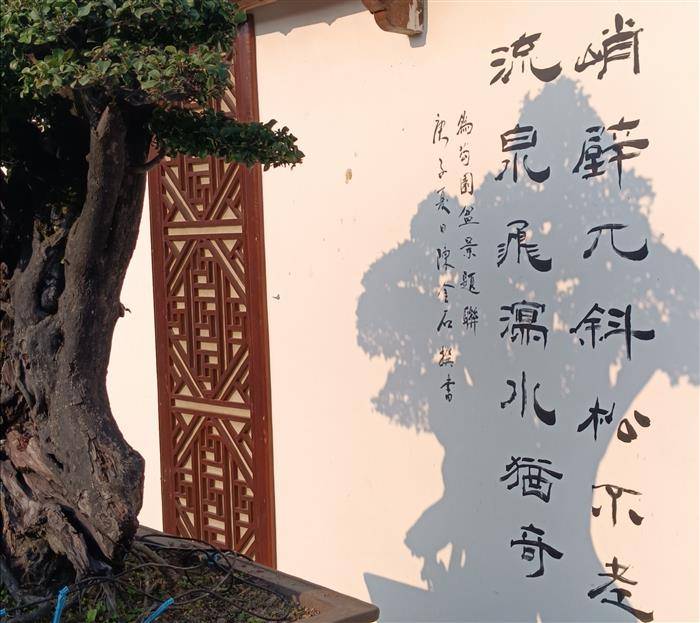 峭壁兀斜松不老
流泉飛瀑水猶奇
為園盆景題聯
庚子夏日陳金石撰書